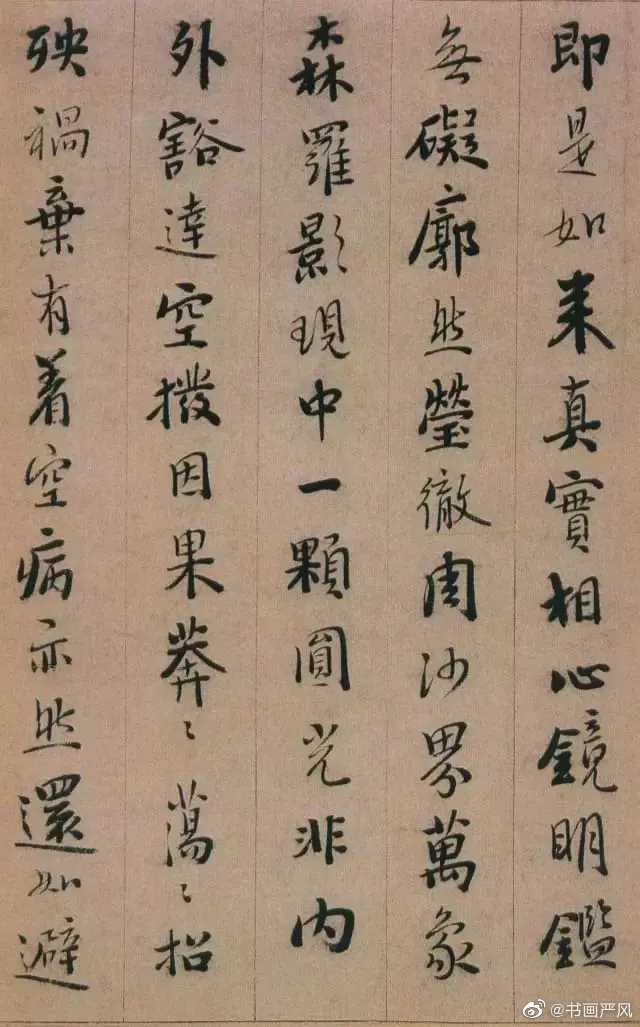 即是如来真實相心鏡明鑑
無礙廓然瑩徹周沙界萬象
森羅影現中一顆圓光非内
外豁達空撥因果莽〻蕩〻招
殃禍棄有着空病亦然還如避
@书画严风